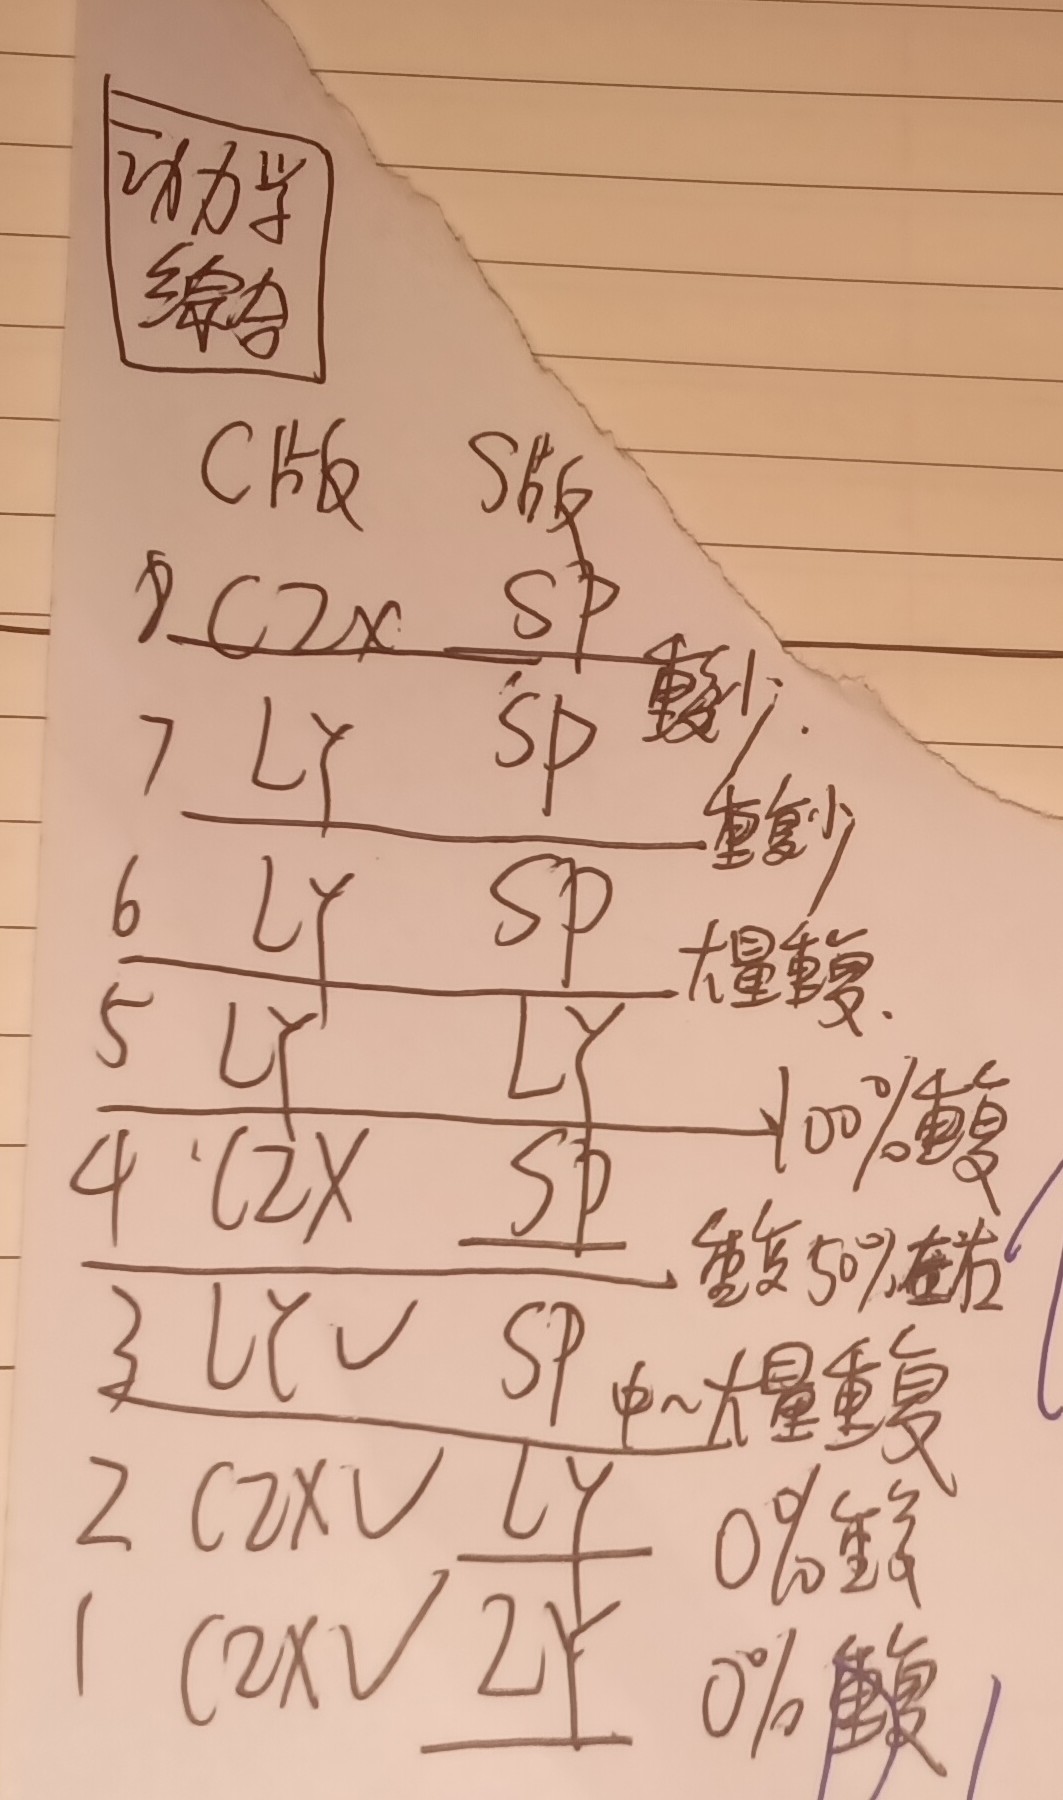 动力学
综合
C版 S版
8 CZX SP 重复少.
7 LY SP 重复少
6 LY SP 大量重复.
5 LY LY 100%重复
4 CZX SP 重复50%左右
3 LY✓ SP 中~大量重复
2 CZX✓ LY 0%重复
1 CZX✓ ZY 0%重复